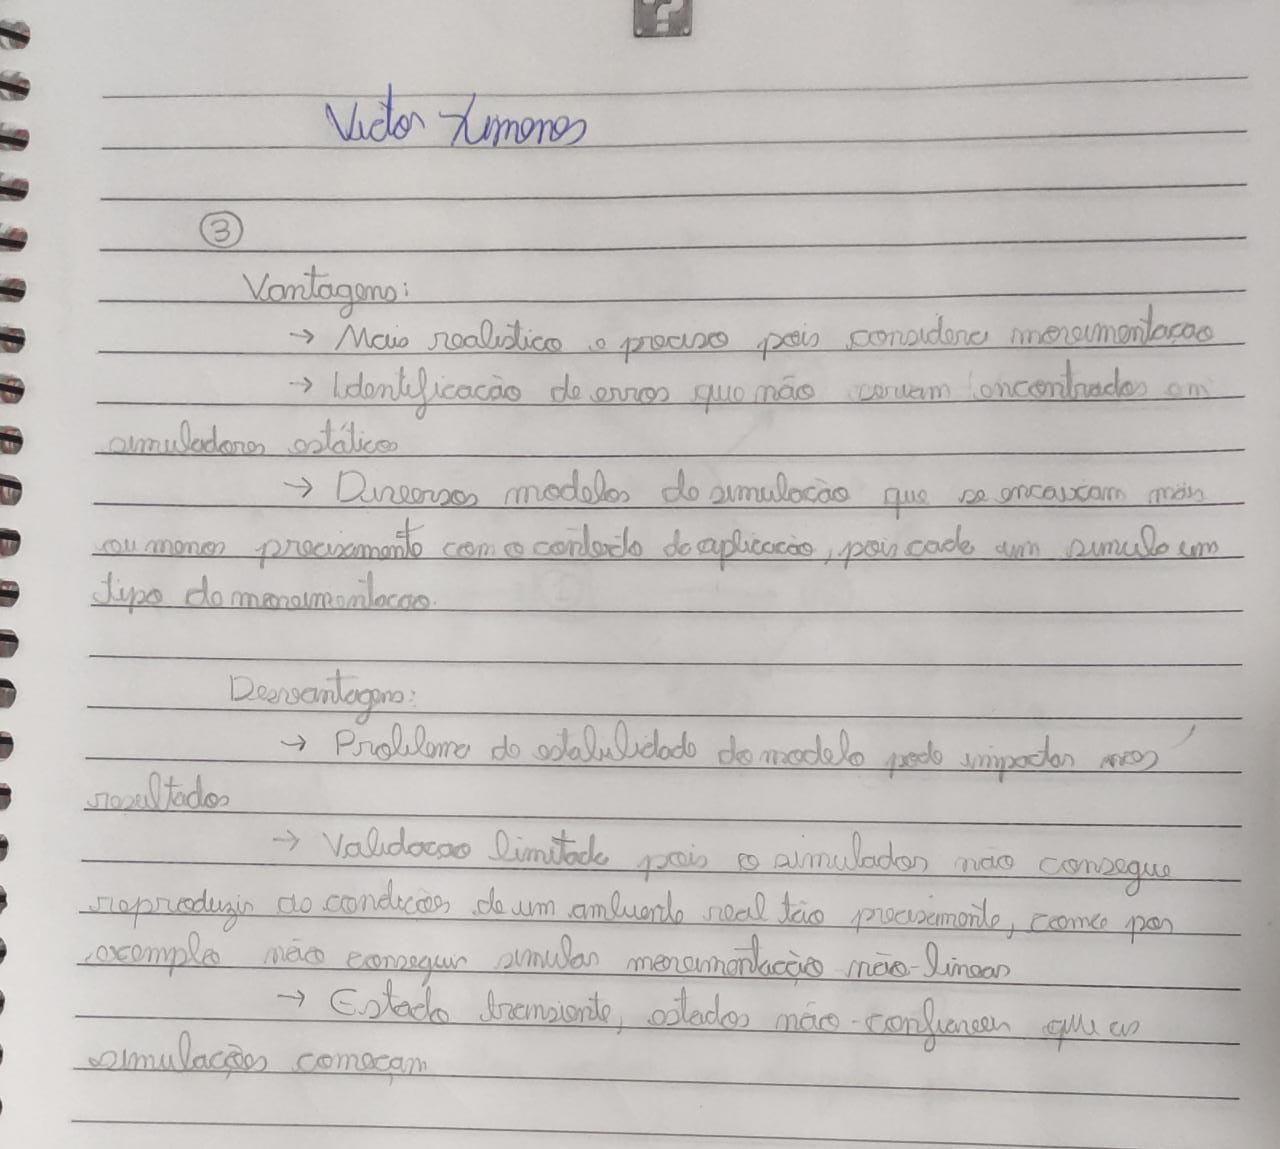 ?
Victor Ximenes
3
Vantagens:
→ Mais realistico e preciso pois considera movimentacao
→ Identificacão de erros que não seriam encontrados em
simuladores estáticos
→ Diversos modelos de simulacão que se encaixam mais
ou menos precisamente com o contexto da aplicacão, pois cada um simula um
tipo de movimentacao.
Desvantagens:
→ Problema de estabilidade do modelo pode impactar nos
resultados
→ Validacao limitada pois o simulador não consegue
reproduzir as condicões de um ambiente real tão precisamente, como por
exemplo não conseguir simular movimentacão não-linear
→ Estado transiente, estados não-confiaveis que as
simulações começam